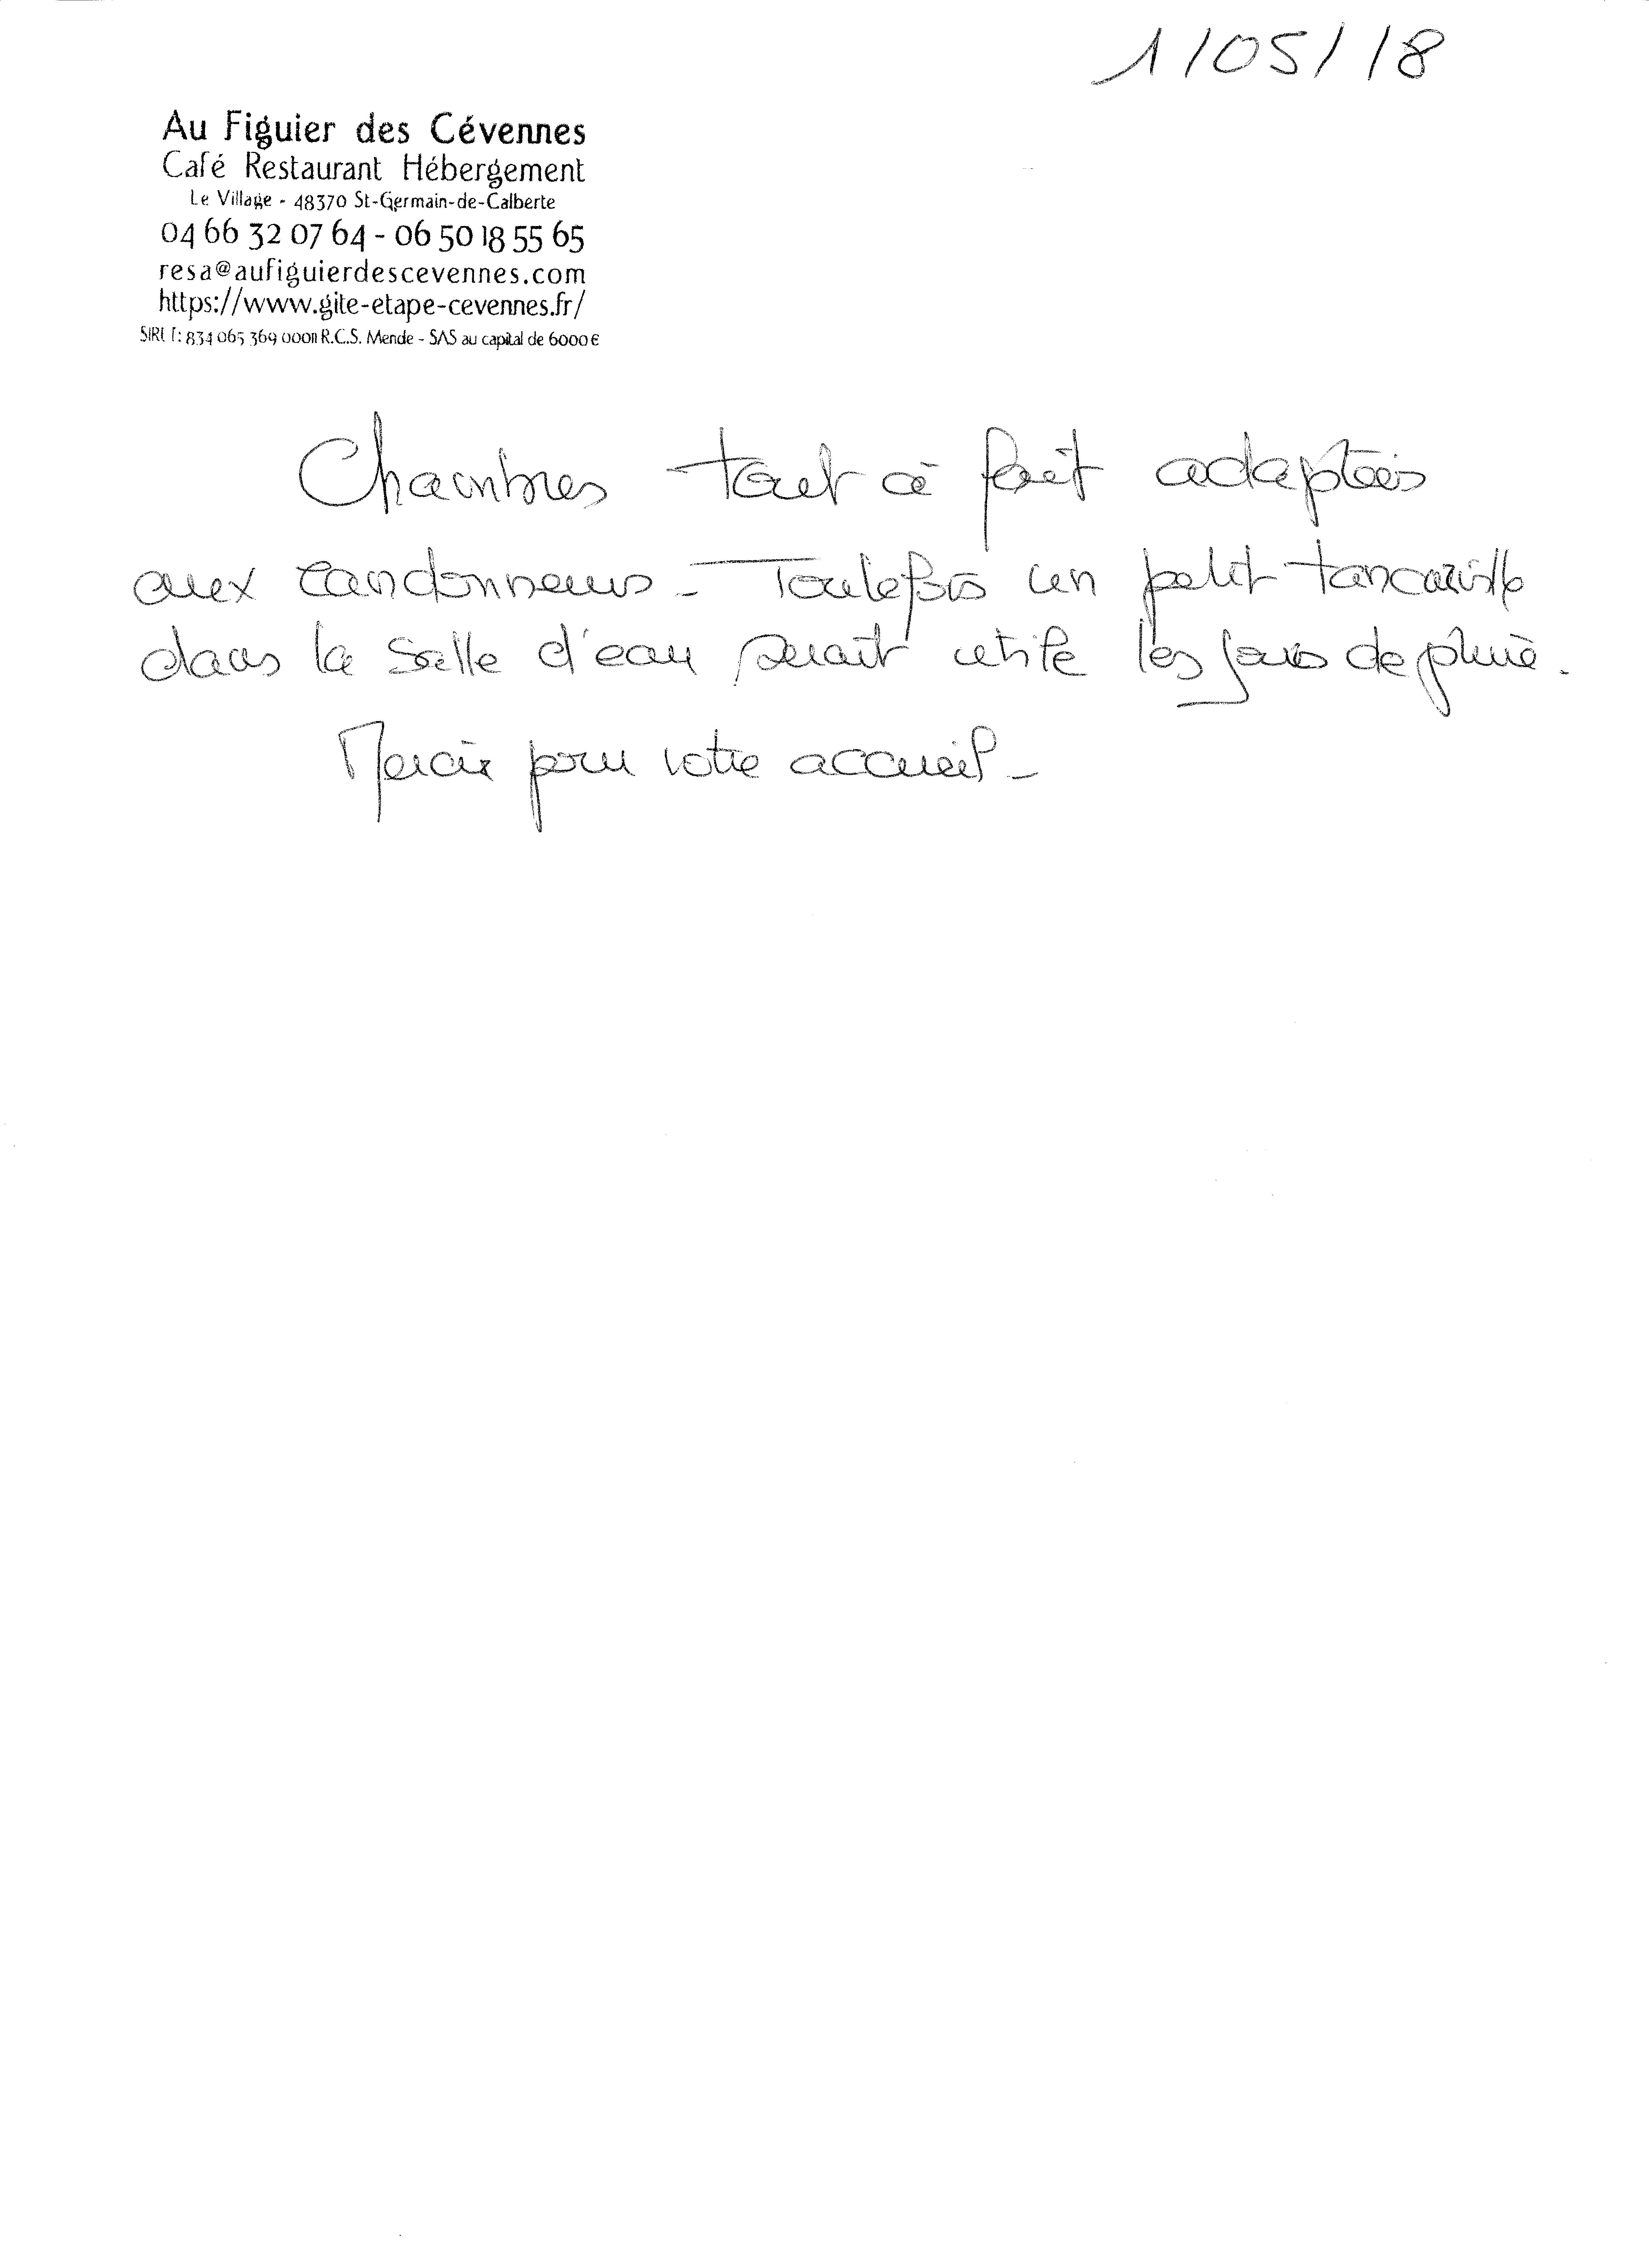 1/05/18
Au Figuier des Cévennes
Café Restaurant Hébergement
Le Village - 48370 St-Germain-de-Calberte
04 66 32 07 64 - 06 50 18 55 65
resa@aufiguierdescevennes.com
https://www.gite-etape-cevennes.fr/
SIRET: 834 065 369 00011 R.C.S. Mende - SAS au capital de 6000€
Chambres tout à fait adaptées
aux randonneurs - Toutefois un petit tancarville
dans la salle d'eau serait utile les jours de pluie.
Merci pour votre accueil -